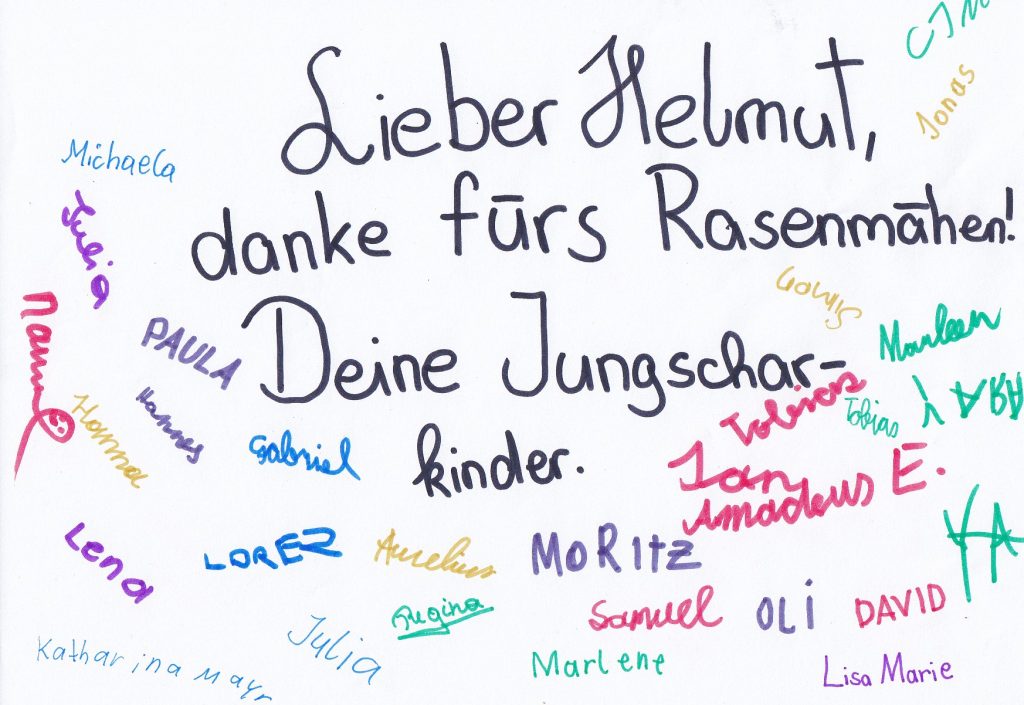 Lieber Helmut,
danke fürs Rasenmähen!
Deine Jungschar-
kinder.
Jonas
Michaela
Julia
PAULA
Hannes
Hanna
Gabriel
Marleen
Tobias
Tobias
Jan
Amadeus E.
Lena
LOREZ
Aurelius
MORITZ
Regina
Samuel
OLI
DAVID
Julia
Marlene
Katharina Mayr
Lisa Marie